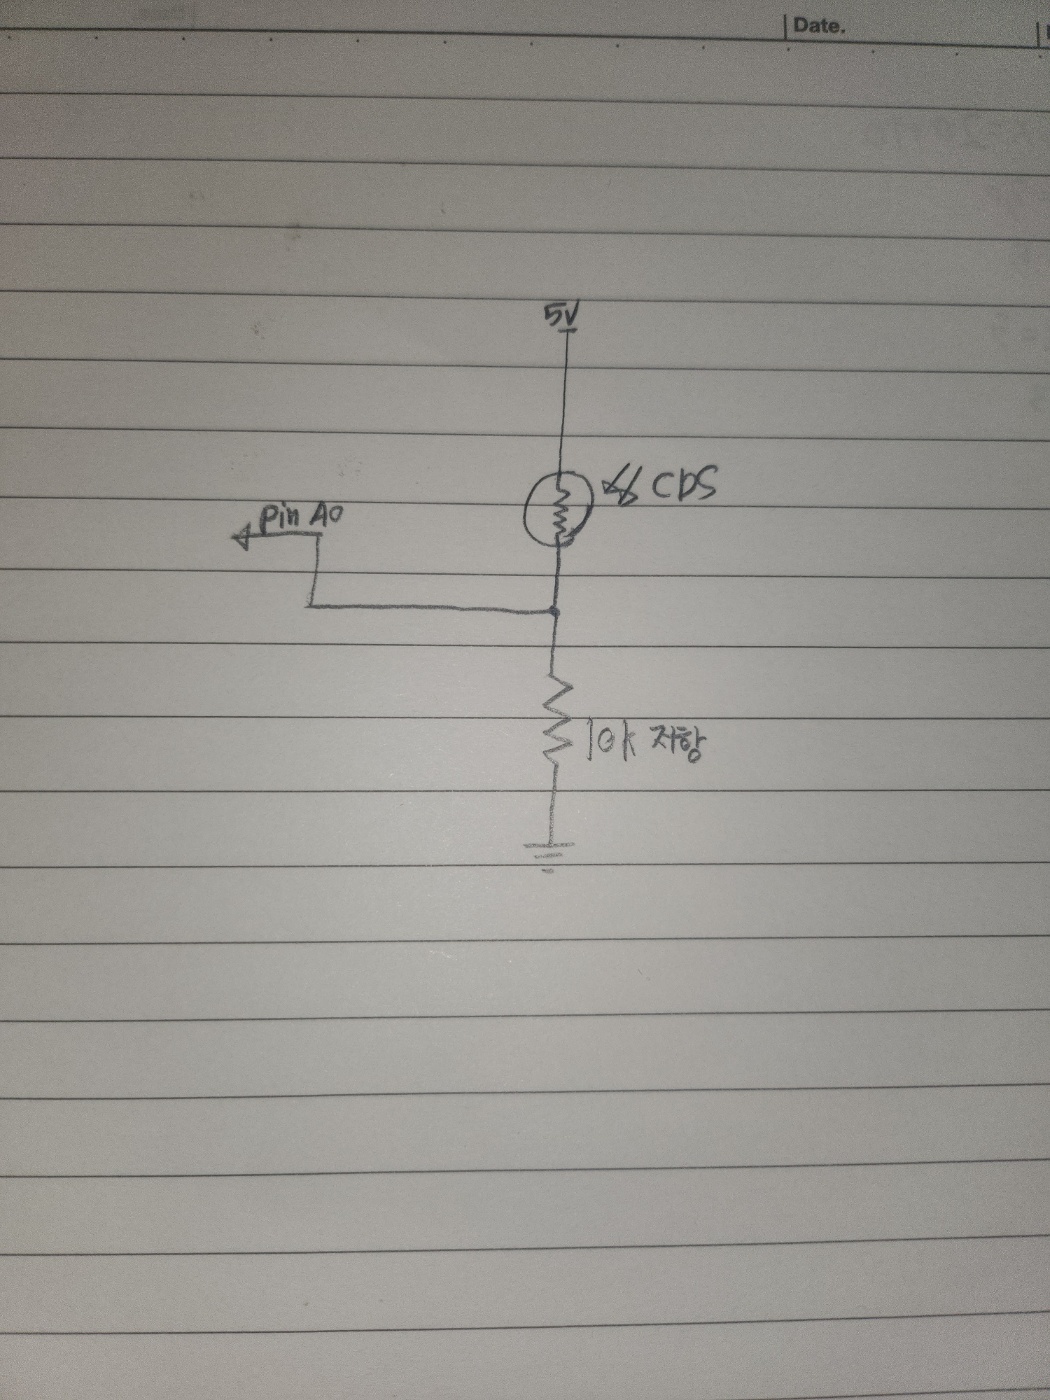 Date.
5V
CDS
Pin A0
10k 저항